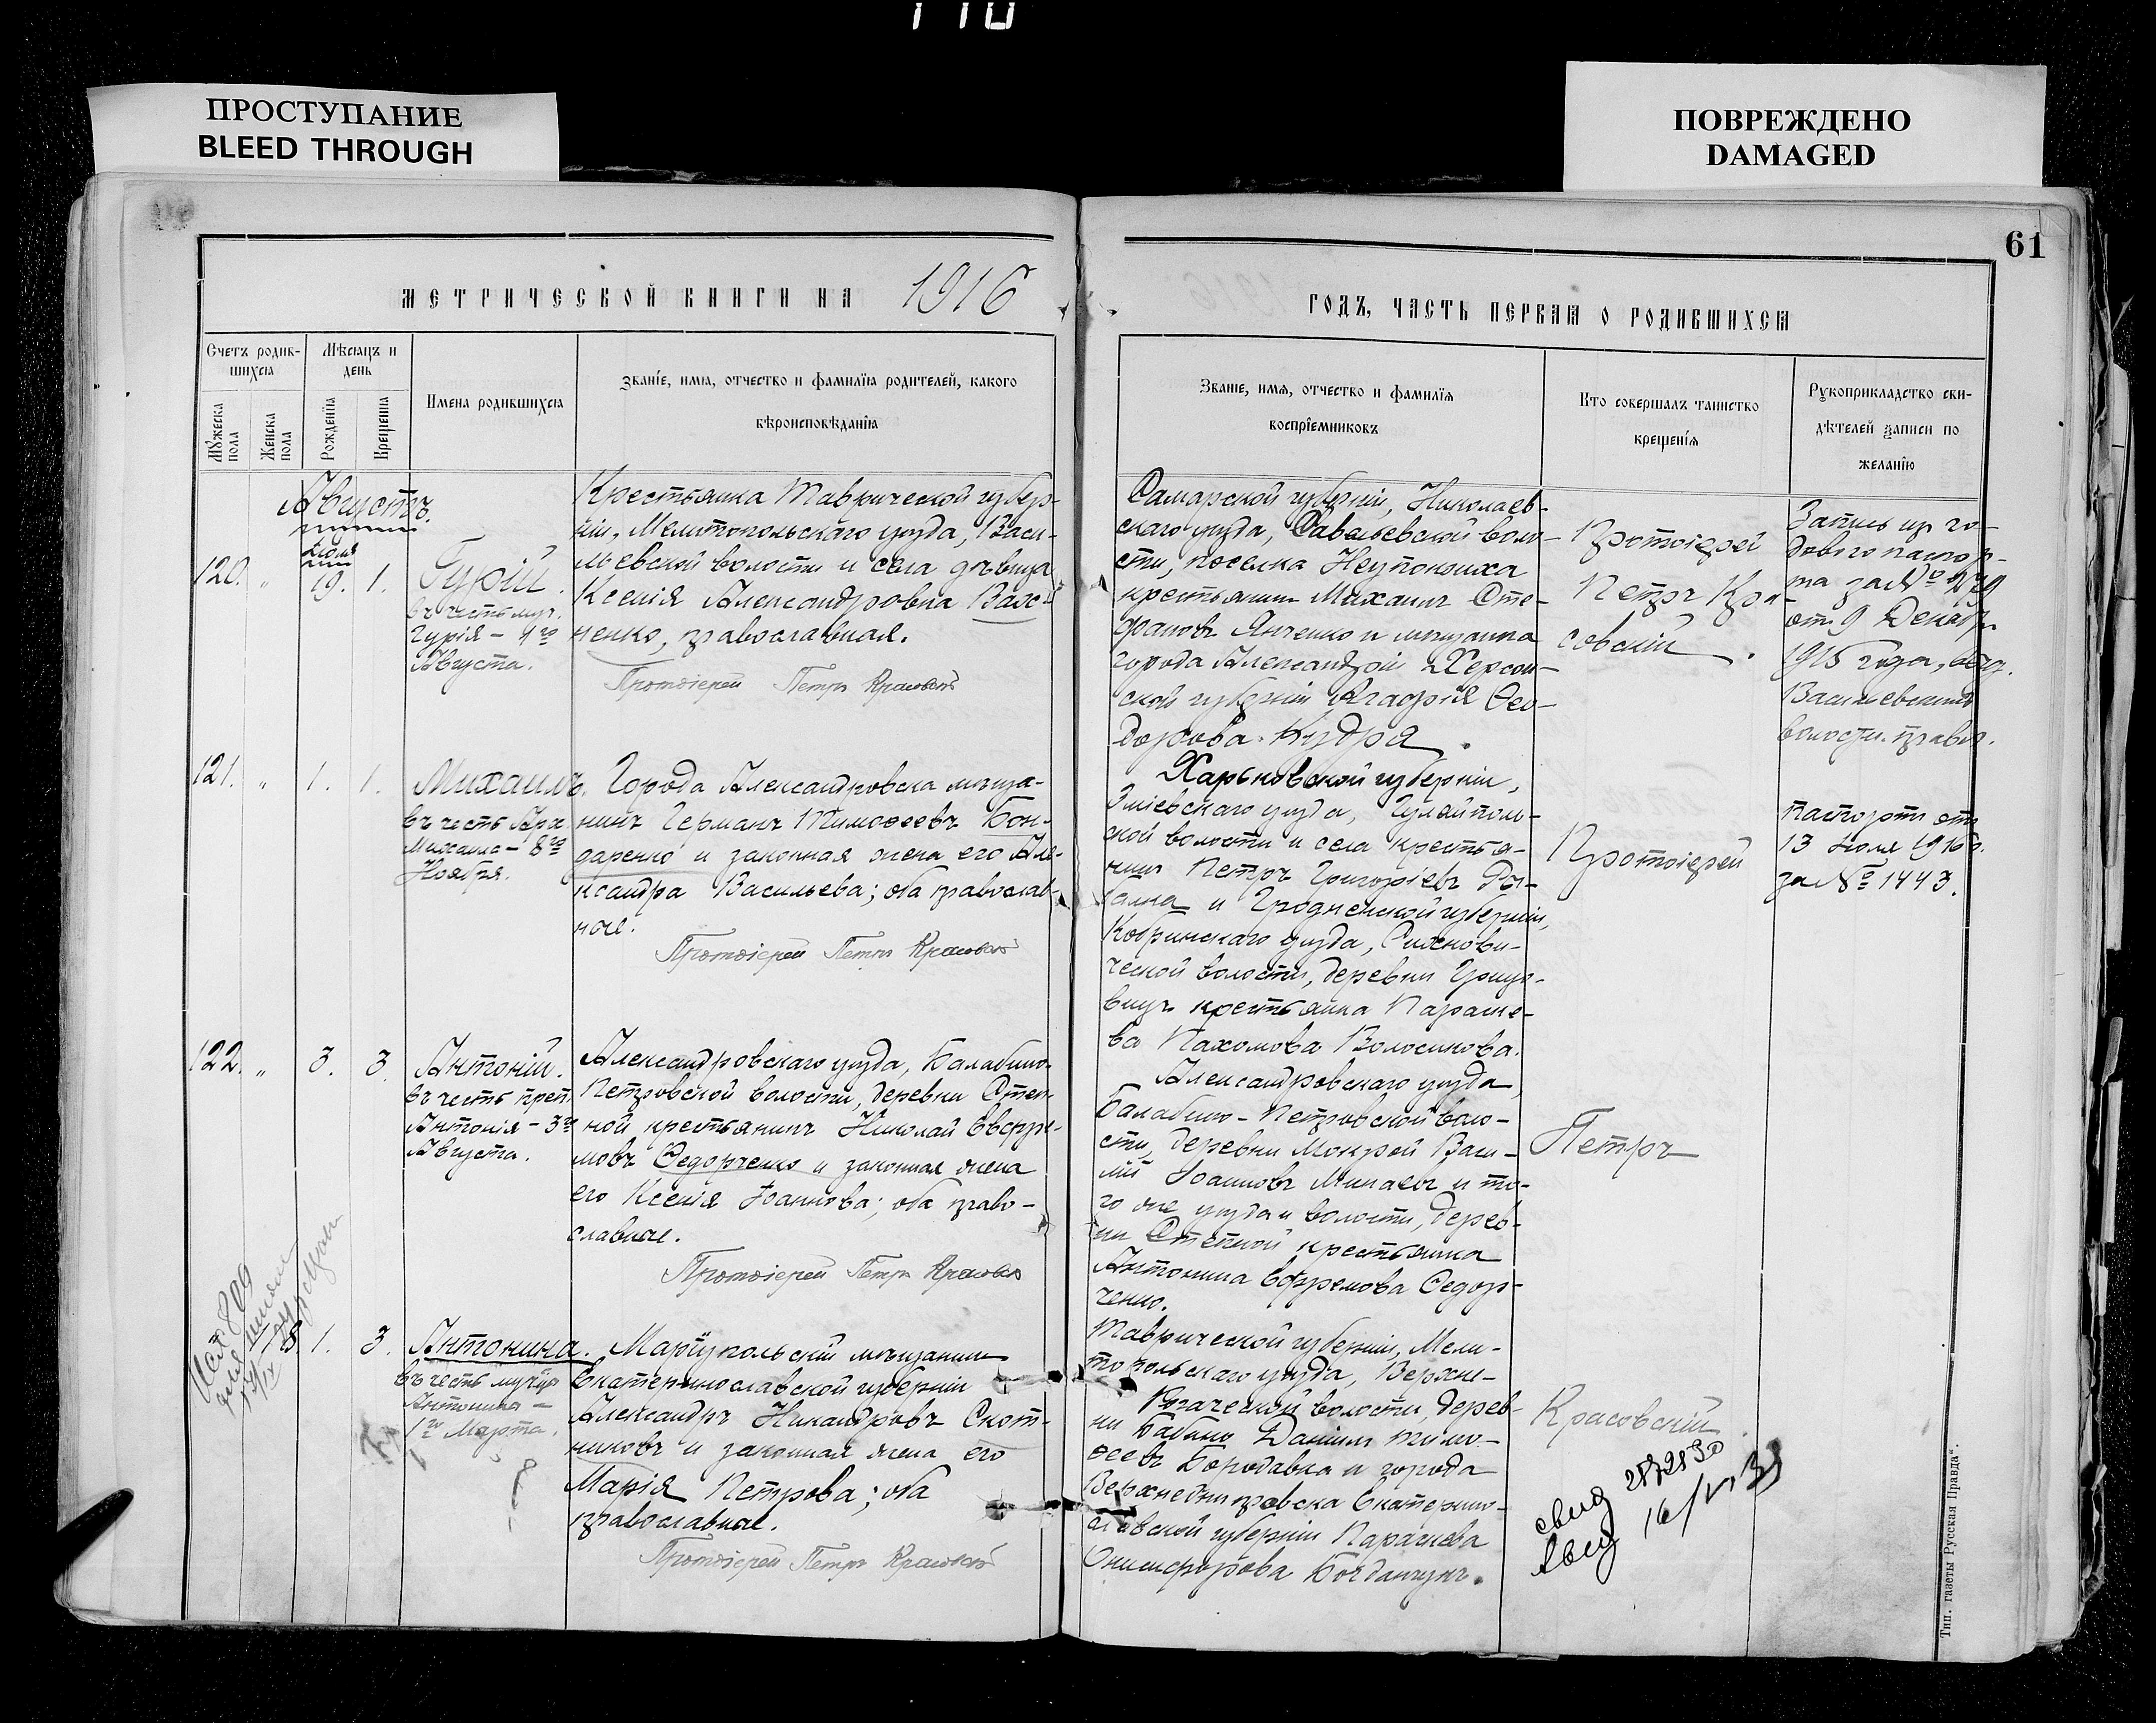 110
ПРОСТУПАНИЕ
BLEED THROUGH
ПОВРЕЖДЕНО
DAMAGED
61
МЕТРИЧЕСКОЙ КНИГИ НА 1916
ГОДЪ, ЧАСТЬ ПЕРВАЯ О РОДИВШИХСЯ
Счетъ родив-
шихся
Мѣсяцъ и
день
Мужеска
пола
Женска
пола
Рожденїя
Крещенїя
Имена родившихся
Званїе, имя, отчество и фамилїя родителей, какого
вѣроисповѣданїя
Званїе, имя, отчество и фамилїя
воспрїемниковъ
Кто совершалъ таинство
крещенїя
Рукоприкладство сви-
дѣтелей записи по
желанїю
Августъ.
Іюля
120. „ 19. 1. Гурій.
въ честь муч.
Гурія – 4го
Августа.
Крестьянка Таврической губер-
ніи, Мелитопольскаго уѣзда, Васи-
льевской волости и села дѣвица
Ксенія Александровна Вахъ-
ненко, православная.
Протоіерей Петръ Красовскій
Самарской губерніи, Николаев-
скаго уѣзда, Савельевской воло-
сти, поселка
крестьянинъ Михаилъ Сте-
фановъ Янченко и мѣщанка
города Александріи Херсон-
ской губерніи Агафія Ѳео-
дорова Кудря.
Протоіерей
Петръ Кра-
совскій.
Запись пр. го-
дового паспор-
та за №
от 9 Декабр.
1915 года, выд.
Васильевскимъ
волостн. правл.
121. „ 1. 1. Михаилъ.
въ честь Арх.
Михаила – 8го
Ноября.
Города Александровска мѣща-
нинъ Германъ Тимоѳеевъ Бон-
даренко и законная жена его Але-
ксандра Васильева; оба православ-
ные.
Протоіерей Петръ Красовскій
Харьковской губерніи,
Зміевскаго уѣзда, Гуляйполь-
ской волости и села крестья-
нинъ Петръ Григоріевъ
и Гродненской губерніи,
Кобринскаго уѣзда,
ческой волости, деревни
крестьянка Параске-
ва Пахомова Волосикова.
Протоіерей
Паспортъ отъ
13 Іюля 1916 г.
за № 1443.
122. „ 3. 3. Антоній.
въ честь преп.
Антонія – 3го
Августа.
Александровскаго уѣзда, Балабино-
Петровской волости, деревни Степ-
ной крестьянинъ Николай Евфре-
мовъ Ѳедорченко и законная жена
его Ксенія Іоаннова; оба право-
славные.
Протоіерей Петръ Красовскій
Александровскаго уѣзда,
Балабино-Петровской воло-
сти, деревни Мокрой Васи-
лій Іоанновъ Минаевъ и то-
го же уѣзда и волости, дерев-
ни Степной крестьянка
Антонина Ефремова Ѳедор-
ченко.
Петръ
1. 3. Антонина.
въ честь муч-цы
Антонины –
1го Марта.
Маріупольскій мѣщанинъ
Екатеринославской губерніи
Александръ Никандровъ Скот-
никовъ и законная жена его
Марія Петрова; оба
православные.
Протоіерей Петръ Красовскій
Таврической губерніи, Мели-
топольскаго уѣзда, Верхне-
Рогачекской волости, дерев-
ни Бабино Даніилъ Тимо-
ѳеевъ Бородавка и города
Верхнеднѣпровска Екатерино-
славской губерніи Параскева
Онисифорова Богданчукъ.
Красовскій
Тип. газеты Русская Правда“.